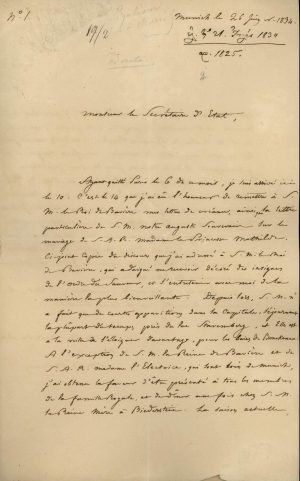 Nº 1.
Munich le 26 Juin 1834.
19/2
1834
1825.
2
Monsieur le Secrétaire d'Etat,
Ayant quitté Paris le 6 de ce mois, je suis arrivé ici
le 10. C'est le 14 que j'ai eu l'honneur de remettre à S.
M. le Roi de Bavière mes lettres de créance, ainsi que la lettre
particulière de S. M. notre auguste Souverain sur le
mariage de S. A. R. Madame la Princesse Mathilde.
Ci-joint copie du discours que j'ai adressé à S. M. le Roi
de Bavière, qui a daigné me recevoir décoré des insignes
de l'ordre du Sauveur, et s'entretenir avec moi de la
manière la plus bienveillante. Depuis lors, S. M. n'a
a fait que de courtes apparitions dans la Capitale, séjournant
la plupart du temps, près du lac
et Elle est
à la veille de s'éloigner davantage, pour les bains de
A l'exception de S. M. la Reine de Bavière et de
S. A. R. madame l'Electrice, qui sont hors de Munich,
j'ai obtenu la faveur d'être présenté à tous les membres
de la famille Royale, et de dîner une fois chez S. M.
la Reine Mère à Biederstein. La saison actuelle,